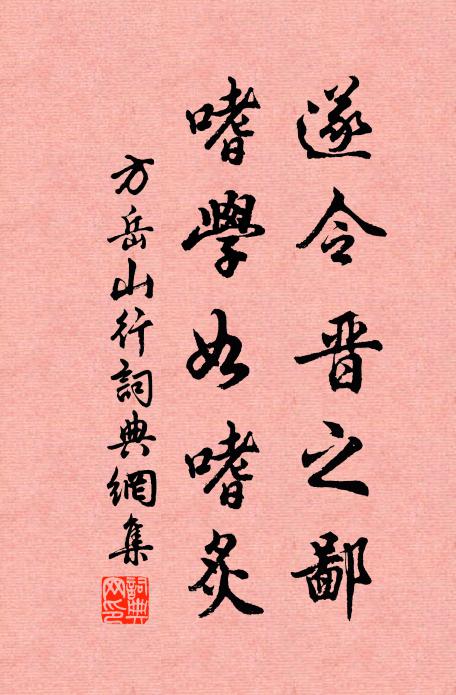 遂令晋之鄙
嗜學如嗜炙
方岳山行詞典網集
詞典網印